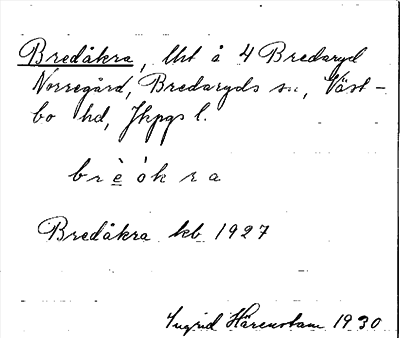 Bredåkra, lht å 4 Bredaryd
Norregård, Bredaryds sn, Väst-
bo hd, Jkpgs l.
brè̱ókra
Bredåkra kb 1927
Ingrid Härenstam 1930